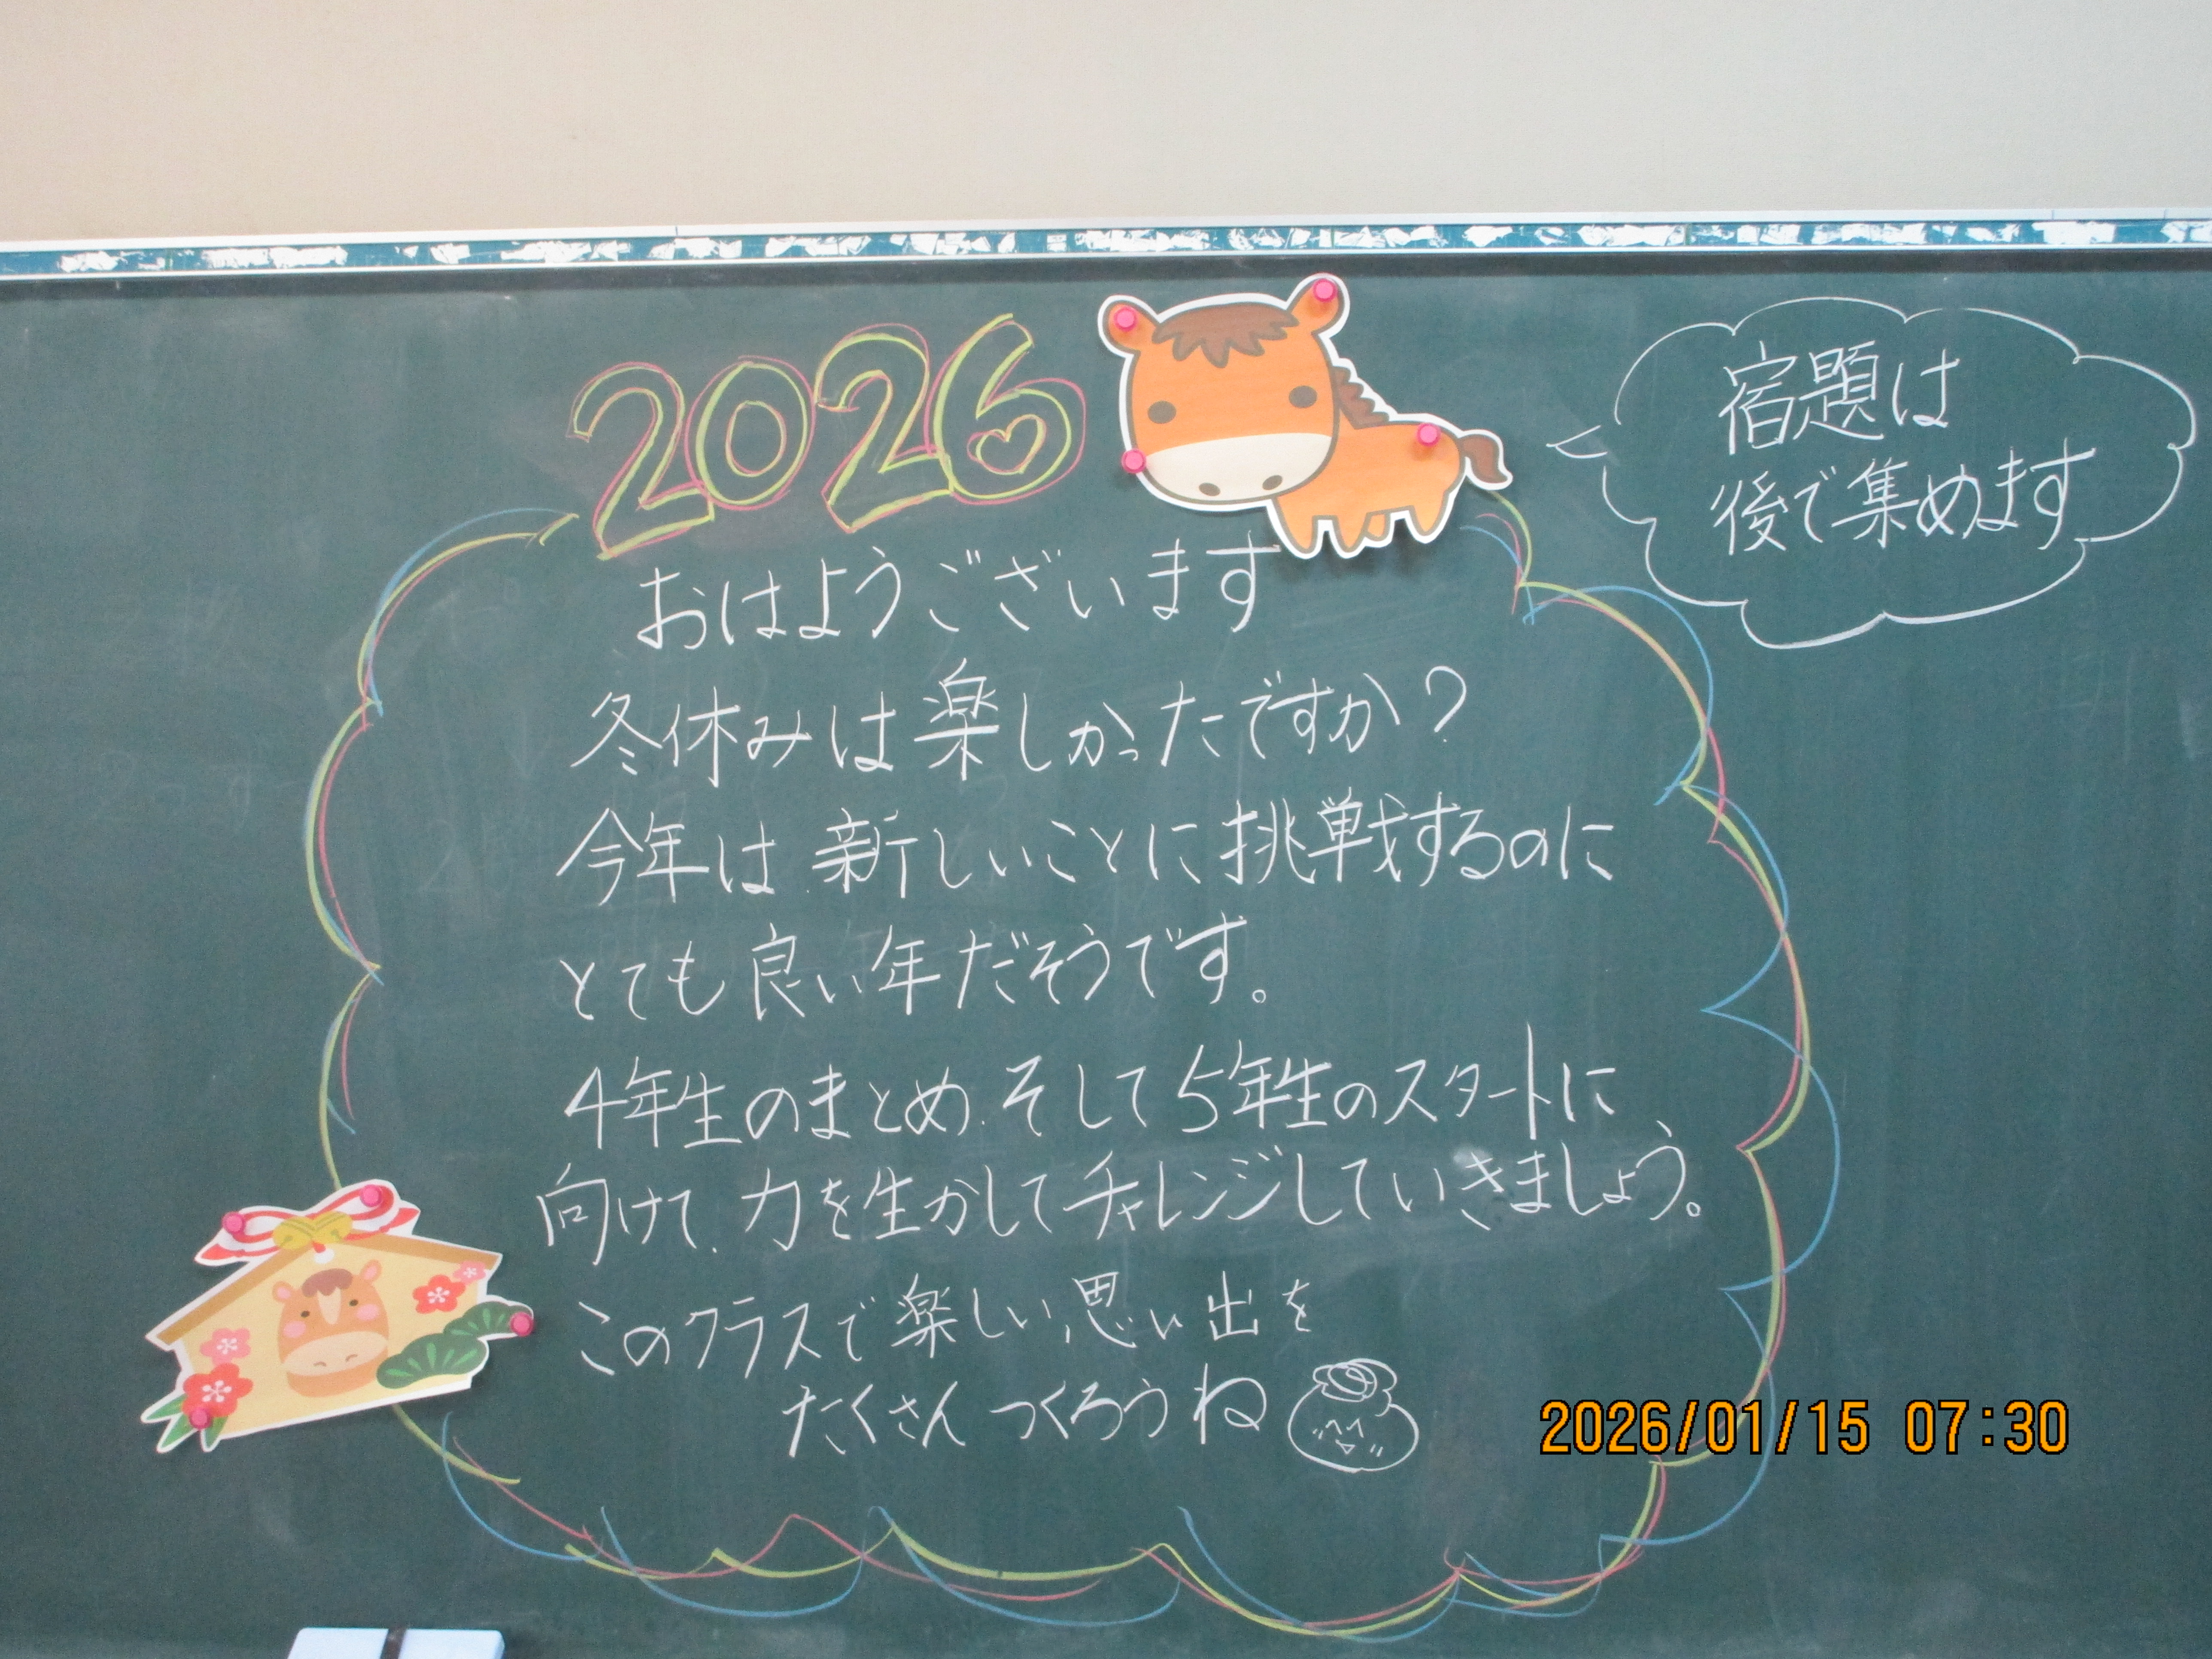 2026
おはようございます
冬休みは楽しかったですか？
今年は新しいことに挑戦するのに
とても良い年だそうです。
4年生のまとめ、そして5年生のスタートに
向けて、力を生かしてチャレンジしていきましょう。
このクラスで楽しい思い出を
たくさんつくろうね
宿題は
後で集めます
2026/01/15 07:30